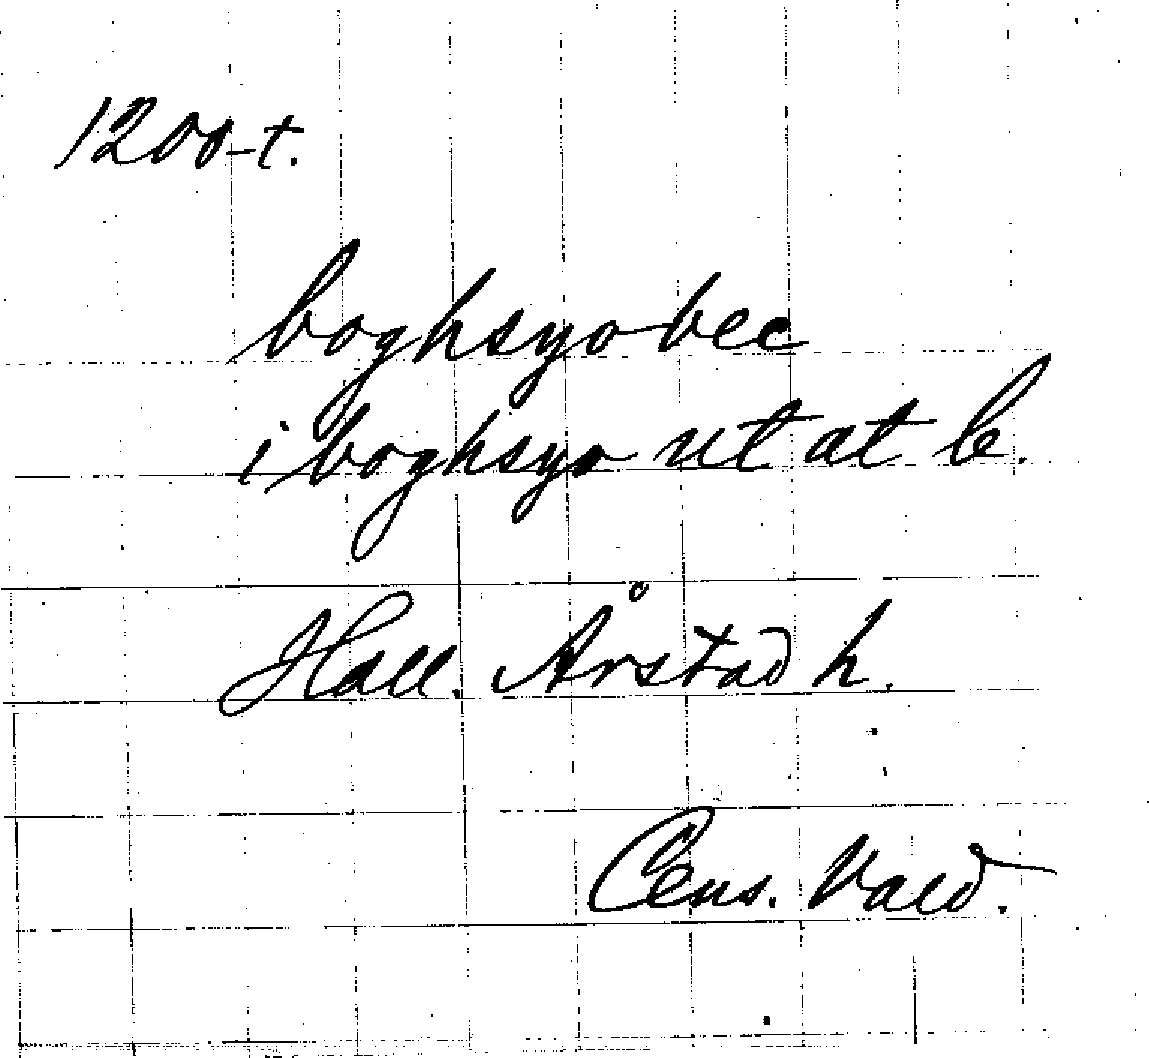 1200-t.
boghsyobec
i boghsyo ut at b.
Hall. Årstad h.
Cens. Vald.